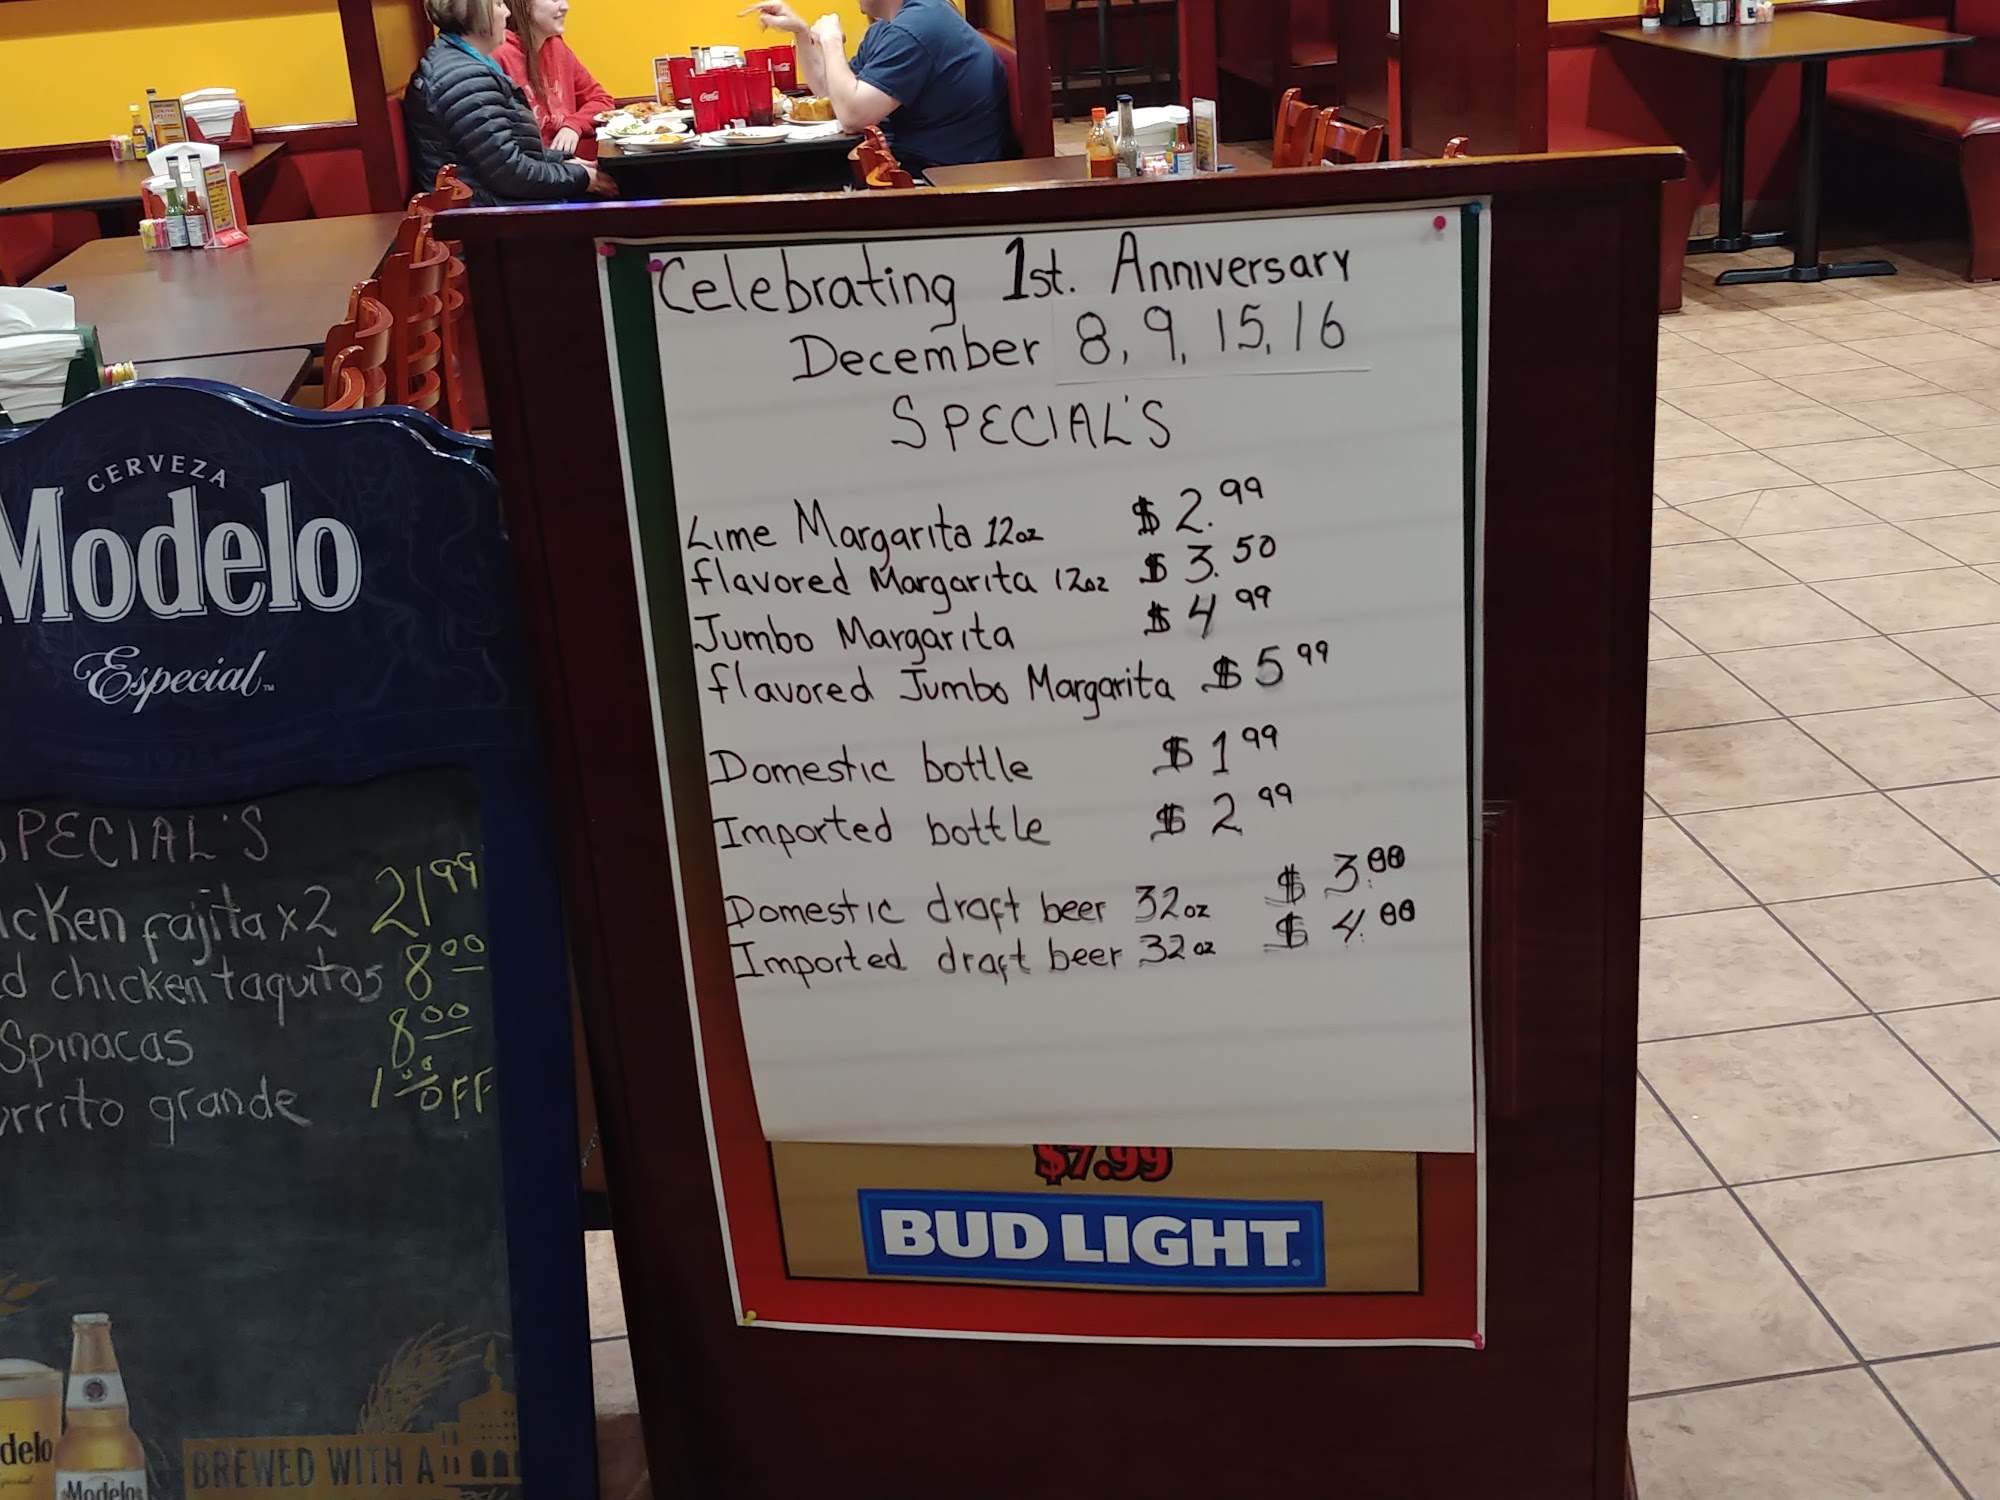 Celebrating 1st. Anniversary
December 8, 9, 15, 16
SPECIAL'S
Lime Margarita 12oz $2.99
flavored Margarita 12oz $3.50
Jumbo Margarita $4 99
flavored Jumbo Margarita $5 99
Domestic bottle $1 99
Imported bottle $2 99
Domestic draft beer 32oz $3.00
Imported draft beer 32oz $4.00
$7.99
BUD LIGHT
CERVEZA
Modelo
Especial
1925
PECIAL'S
icken fajita x2 21 99
d chicken taquitos 8 00
Spinacas 8 00
rrito grande 1 00 OFF
delo
Modelo
BREWED WITH A
Coca-Cola